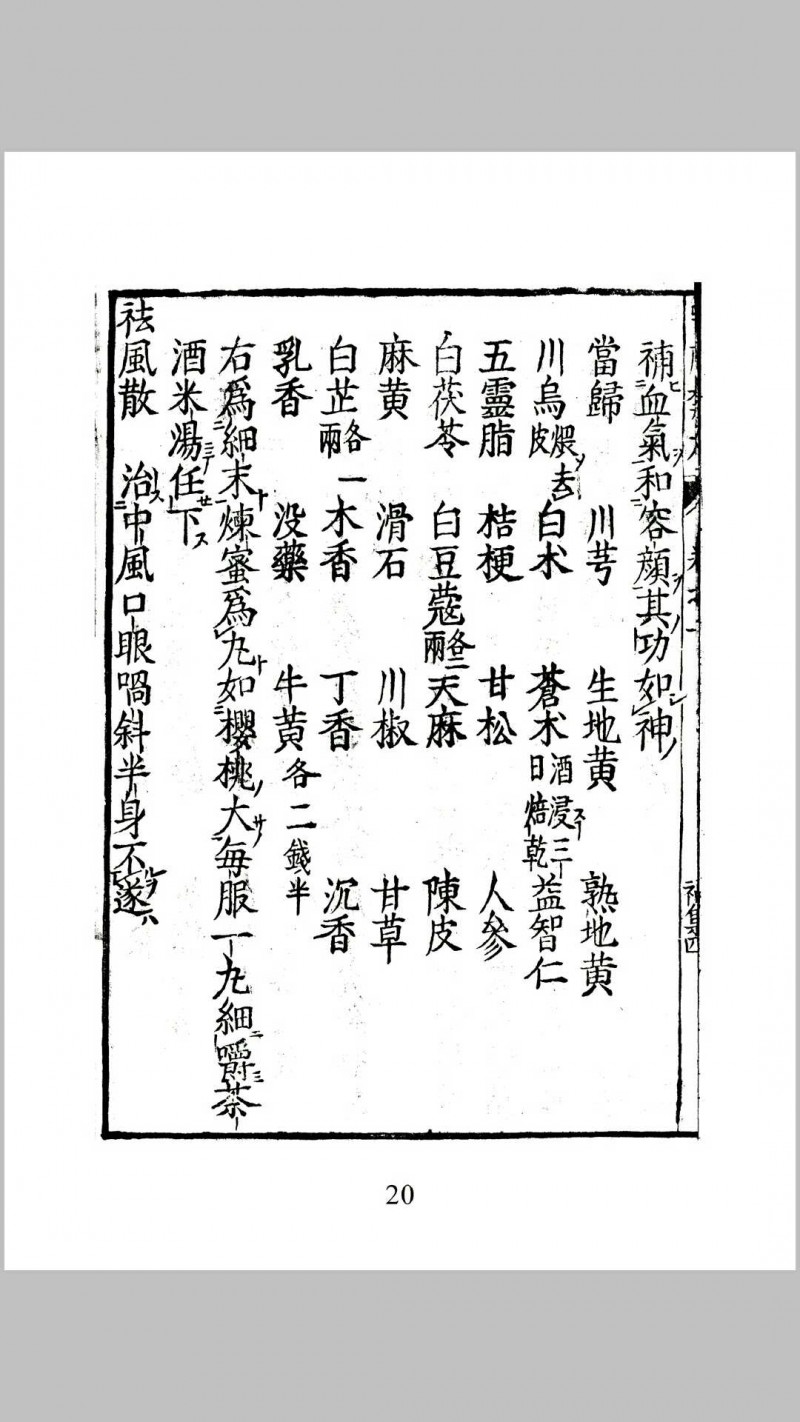 補血氣和容顔其功如神
當歸 川芎 生地黄 熟地黄
川烏煨去皮 白朮 蒼朮酒浸三日焙乾 益智仁
五靈脂 桔梗 甘松 人參
白茯苓 白豆蔻各二兩 天麻 陳皮
麻黄 滑石 川椒 甘草
白芷各一兩 木香 丁香 沉香
乳香 没藥 牛黄各二錢半
右爲細末煉蜜爲丸如櫻桃大每服一丸細嚼茶
酒米湯任下
祛風散 治中風口眼喎斜半身不遂
20